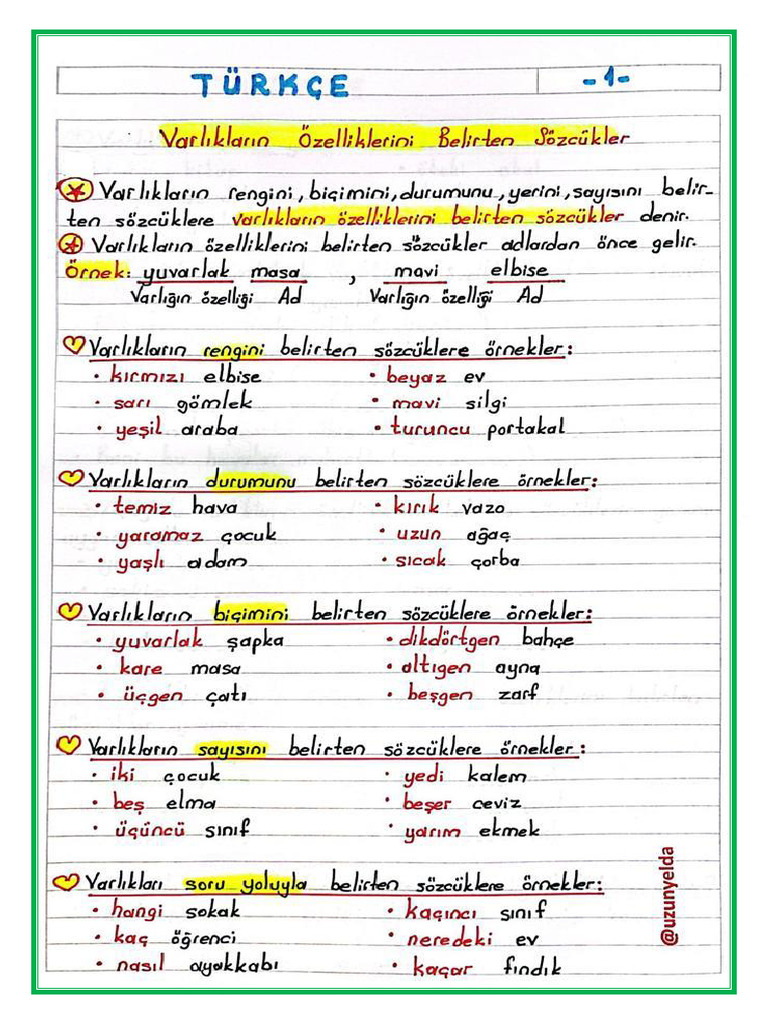 TÜRKÇE
-1-
Varlıkların Özelliklerini Belirten Sözcükler
Varlıkların rengini, biçimini, durumunu, yerini, sayısını belir-
ten sözcüklere varlıkların özelliklerini belirten sözcükler denir.
Varlıkların özelliklerini belirten sözcükler adlardan önce gelir.
Örnek: yuvarlak masa , mavi elbise
Varlığın özelliği Ad Varlığın özelliği Ad
Varlıkların rengini belirten sözcüklere örnekler:
• kırmızı elbise • beyaz ev
• sarı gömlek • mavi silgi
• yeşil araba • turuncu portakal
Varlıkların durumunu belirten sözcüklere örnekler:
• temiz hava • kırık vazo
• yaramaz çocuk • uzun ağaç
• yaşlı adam • sıcak çorba
Varlıkların biçimini belirten sözcüklere örnekler:
• yuvarlak şapka • dikdörtgen bahçe
• kare masa • altıgen ayna
• üçgen çatı • beşgen zarf
Varlıkların sayısını belirten sözcüklere örnekler:
• iki çocuk • yedi kalem
• beş elma • beşer ceviz
• üçüncü sınıf • yarım ekmek
Varlıkları soru yoluyla belirten sözcüklere örnekler:
• hangi sokak • kaçıncı sınıf
• kaç öğrenci • neredeki ev
• nasıl ayakkabı • kaçar fındık
@uzunyelda